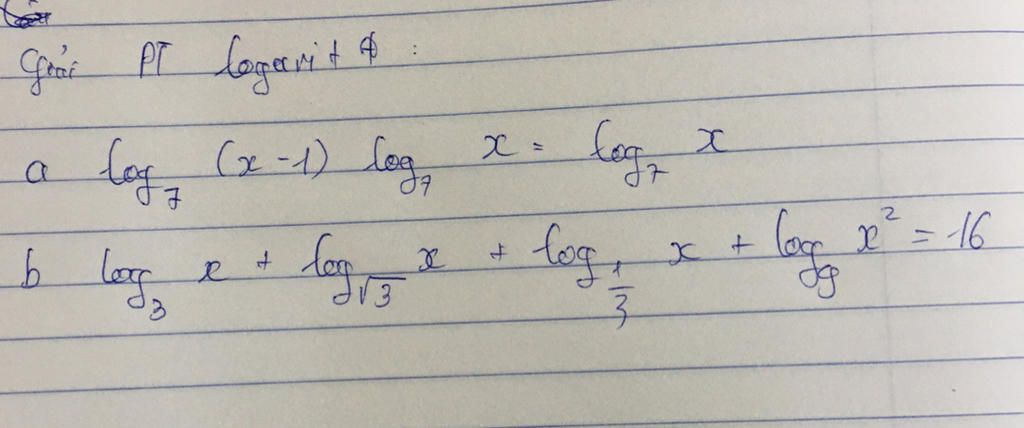 Giải PT logarit :
a log₇ (x-1) log₇ x = log₇ x
b log₃ x + log_√3 x + log_1/3 x + log₉ x² = 16